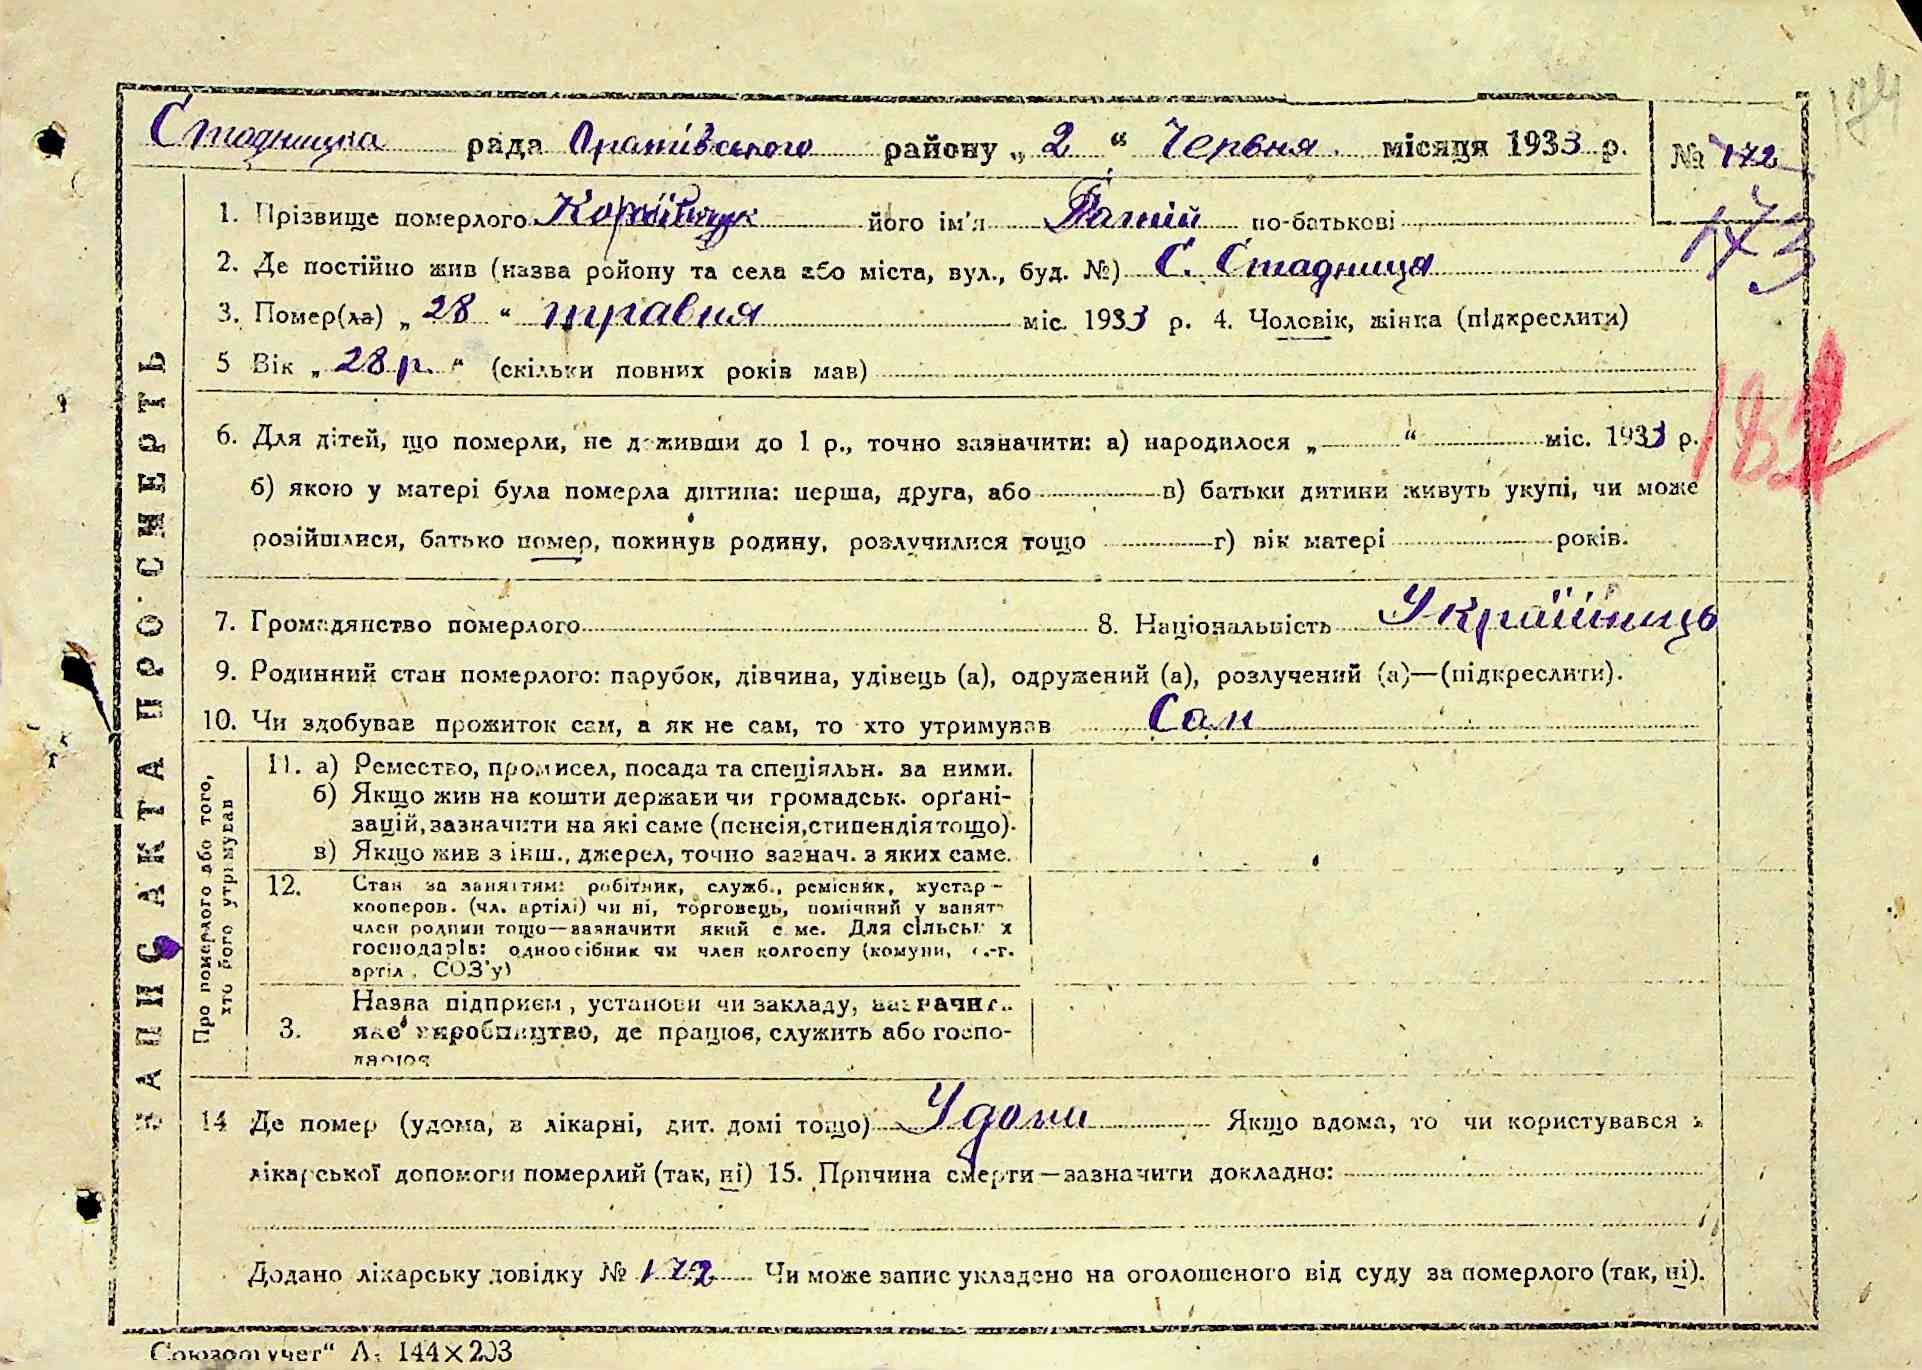 184
Стадницка рада Оратівського району „ 2 “ Червня місяця 1933 р. № 172
173
1. Прізвище померлого його ім'я по-батькові
2. Де постійно жив (назва ройону та села або міста, вул., буд. №) С. Стадниця
3. Помер(ла) „ 28 “ травня міс. 1933 р. 4. Чоловік, жінка (підкреслити)
5 Вік „ 28 р. “ (скільки повних років мав)
182
6. Для дітей, що померли, не доживши до 1 р., точно зазначити: а) народилося „ “ міс. 1933 р.
б) якою у матері була померла дитина: перша, друга, або в) батьки дитини живуть укупі, чи може
розійшлися, батько помер, покинув родину, розлучилися тощо г) вік матері років.
7. Громадянство померлого 8. Національність Українець
9. Родинний стан померлого: парубок, дівчина, удівець (а), одружений (а), розлучений (а)—(підкреслити).
10. Чи здобував прожиток сам, а як не сам, то хто утримував Сам
ЗАПИС АКТА ПРО СМЕРТЬ
Про померлого або того,
хто його утримував
11. а) Ремество, промисел, посада та спеціяльн. за ними.
б) Якщо жив на кошти держави чи громадськ. орґані-
зацій, зазначити на які саме (пенсія, стипендія тощо).
в) Якщо жив з інш., джерел, точно зазнач. з яких саме.
12. Стан за заняттям: робітник, служб., ремісник, кустар -
кооперов. (чл. артілі) чи ні, торговець, помічний у занят
член родини тощо—зазначити який саме. Для сільськ х
господарів: одноосібник чи член колгоспу (комуни, с.-г.
артіл , СОЗ'у)
Назва підприєм , установи чи закладу, зазначит..
3. яке виробництво, де працює, служить або госпо-
дарює
14 Де помер (удома, в лікарні, дит. домі тощо) Удома Якщо вдома, то чи користувався з
лікарської допомоги померлий (так, ні) 15. Причина смерти—зазначити докладно:
Додано лікарську довідку № 172 Чи може запис укладено на оголошеного від суду за померлого (так, ні).
144×203